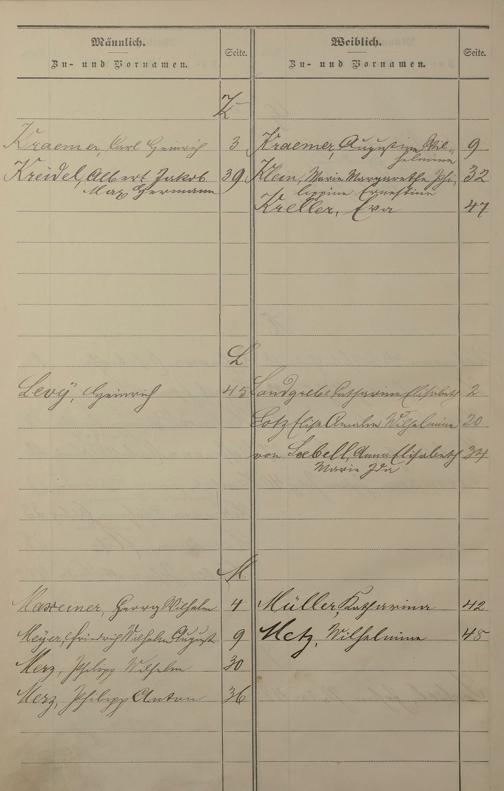 Männlich.
Seite.
Weiblich.
Seite.
Zu- und Vornamen.
Zu- und Vornamen.
K
Kraemer, Carl Heinrich 3
Kraemer, Augustine Wil-
helmine 9
Kreidel, Albert Jakob 39
Max Hermann
Klein, Marie Margarethe Phi-
lippine Ernestine 32
Kreller, Eva 47
L
Levÿ, Heinrich 45
Landgrebe Catharine Elisabeth 2
Lotz Elise Amalie Wilhelmine 20
von Loebell, Anna Elisabeth 34
Marie Ida
M
Maxeiner, Georg Wilhelm 4
Müller, Katharina 42
Meÿer, Friedrich Wilhelm August 9
Metz, Wilhelmine 45
Merz, Philipp Wilhelm 30
Merz, Philipp Anton 36